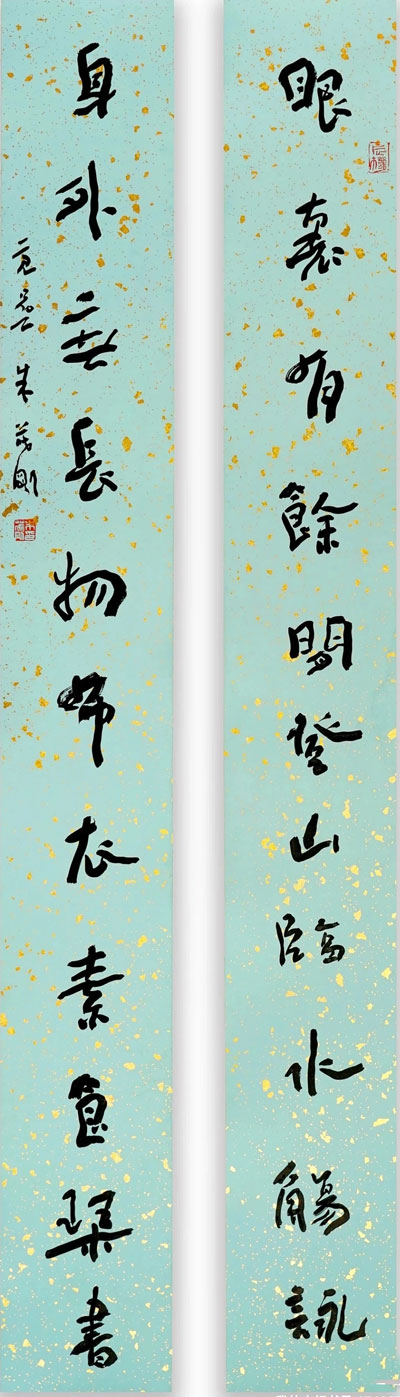 眼裏有餘閒登山臨水觴詠
身外無長物布衣素食琴書
朱茂剛